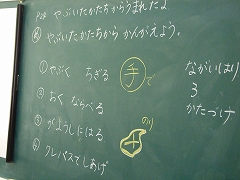 P28 やぶいたかたちからうまれたよ
め やぶいたかたちから かんがえよう。
① やぶく ちぎる 手で
② おく ならべる
③ がようしにはる のり
④ クレパスでしあげ
ながいはり
3
かたづけ